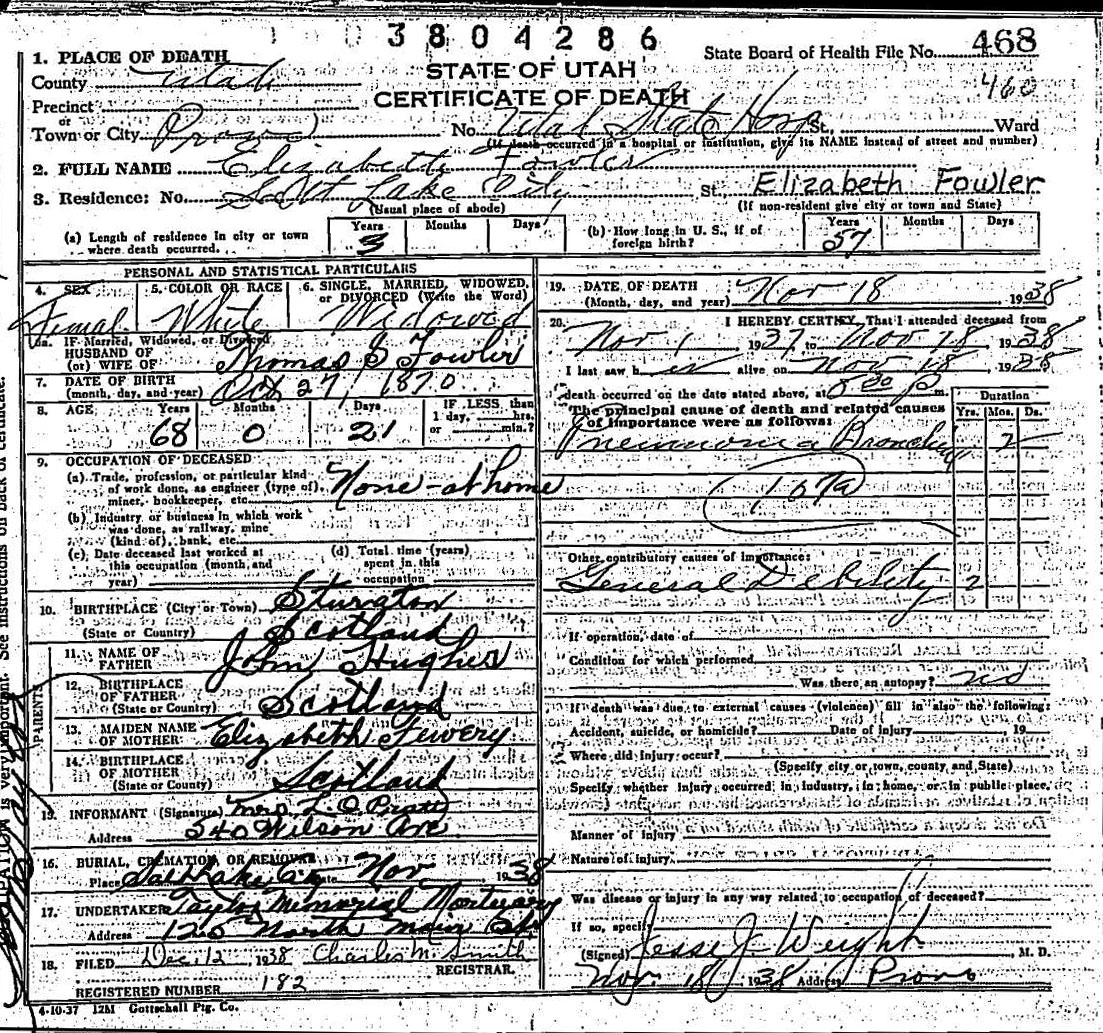 3804286
State Board of Health File No. 468
460
STATE OF UTAH
CERTIFICATE OF DEATH
1. PLACE OF DEATH
County Utah
Precinct
or
Town or City Provo No. Utah State Hosp St., Ward
(If death occurred in a hospital or institution, give its NAME instead of street and number)
2. FULL NAME Elizabeth Fowler
3. Residence: No. Salt Lake City St. Elizabeth Fowler
(Usual place of abode) (If non-resident give city or town and State)
(a) Length of residence in city or town where death occurred. Years 3 Months Days
(b) How long in U. S., if of foreign birth? Years 57 Months Days
PERSONAL AND STATISTICAL PARTICULARS
4. SEX 5. COLOR OR RACE 6. SINGLE, MARRIED, WIDOWED, or DIVORCED (Write the Word)
Femal White Widowed
5a. IF Married, Widowed, or Divorced
HUSBAND OF
(or) WIFE OF Thomas S Fowler
7. DATE OF BIRTH
(month, day, and year) Oct 27, 1870
8. AGE Years Months Days IF LESS than
1 day, hrs.
or min.?
68 0 21
9. OCCUPATION OF DECEASED
(a) Trade, profession, or particular kind
of work done, as engineer (type of),
miner, bookkeeper, etc. None - at home
(b) Industry or business in which work
was done, as railway, mine
(kind of), bank, etc.
(c) Date deceased last worked at
this occupation (month, and
year)
(d) Total time (years)
spent in this
occupation
10. BIRTHPLACE (City or Town)
(State or Country) Scotland
PARENTS
11. NAME OF
FATHER John Hughes
12. BIRTHPLACE
OF FATHER
(State or Country) Scotland
13. MAIDEN NAME
OF MOTHER Elizabeth
14. BIRTHPLACE
OF MOTHER
(State or Country) Scotland
15. INFORMANT (Signature) Mrs. L. O. Pratt
Address 540 Wilson Ave
16. BURIAL, CREMATION, OR REMOVAL
Place Salt Lake Date Nov 1938
17. UNDERTAKER Taylor Memorial Mortuary
Address 125 North Main
18. FILED Dec. 12 1938 Charles M. Smith
REGISTRAR.
REGISTERED NUMBER 182
4-10-37 12M Gottschall Ptg. Co.
19. DATE OF DEATH
(Month, day, and year) Nov 18 1938
20. I HEREBY CERTIFY, That I attended deceased from
Nov 1 1937 to Nov 18 1938
I last saw her alive on Nov 18 1938
death occurred on the date stated above, at 8 00 P m.
The principal cause of death and related causes
of importance were as follows:
Duration
Yrs. Mos. Ds.
Pneumonia Bronchial 2
107a
Other contributory causes of importance:
General Debility 2
If operation, date of
Condition for which performed
Was there an autopsy? no
If death was due to external causes (violence) fill in also the following:
Accident, suicide, or homicide? Date of injury 19
Where did injury occur?
(Specify city or town, county, and State)
Specify whether injury occurred in industry, in home, or in public place.
Manner of injury
Nature of injury
Was disease or injury in any way related to occupation of deceased?
If so, specify
(Signed) Jesse J. Weight, M. D.
Nov. 18 1938 Address Provo